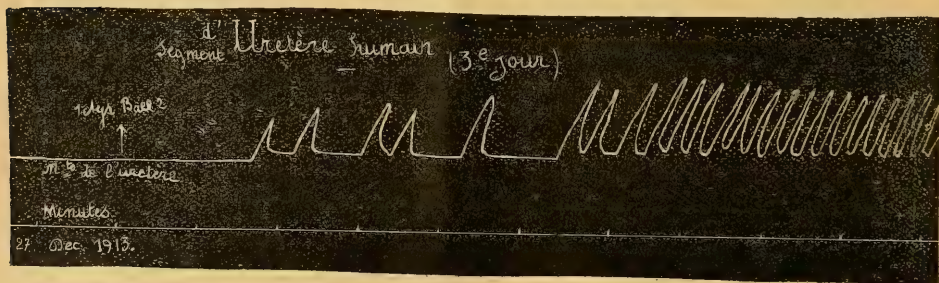 d'
Segment Uretère humain (3e jour)
Mts de l'uretère
Minutes.
27 Dec. 1913.